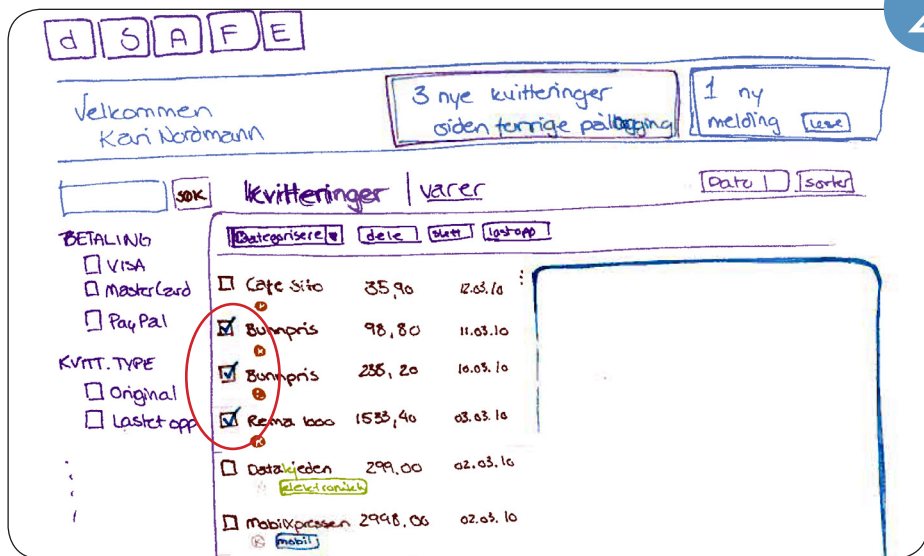 d SAFE
Velkommen
Kari Nordmann
3 nye kvitteringer
siden forrige pålogging
1 ny
melding lese
SØK
kvitteringer | varer
Dato
sorter
Kategorisere dele slett last opp
BETALING
VISA
MasterCard
PayPal
KVITT. TYPE
Original
Lastet opp
Cafe Sito 35,90 12.03.10
K
Bunnpris 98,80 11.03.10
K
Bunnpris 235,20 10.03.10
Rema 1000 1533,40 03.03.10
K
Datakjeden 299,00 02.03.10
elektronikk
MobilXpressen 2998,00 02.03.10
K mobil